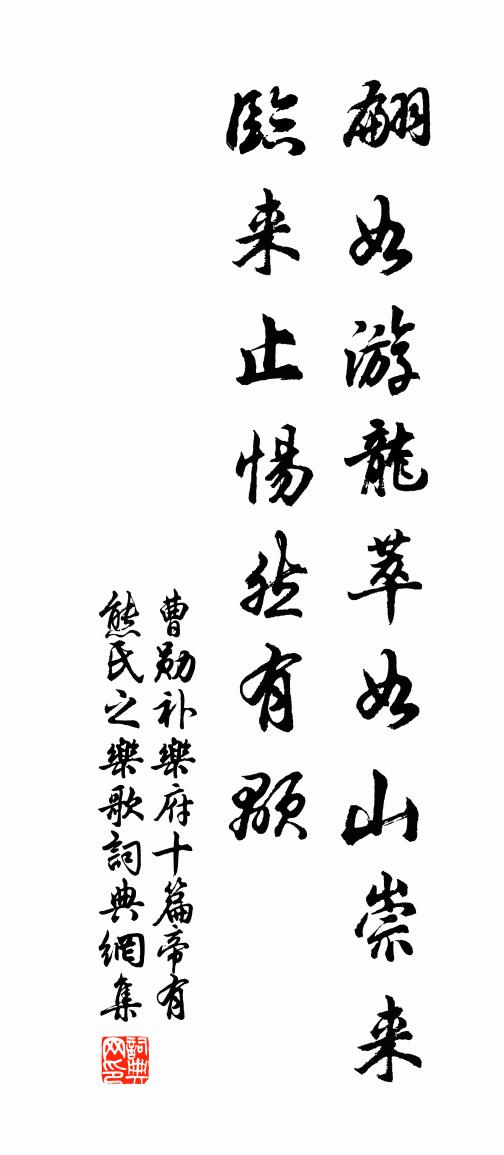 翩如游龍萃如山崇来
臨来止惕然有顒
曹勛补樂府十篇帝有
熊氏之樂歌詞典網集
詞典网印